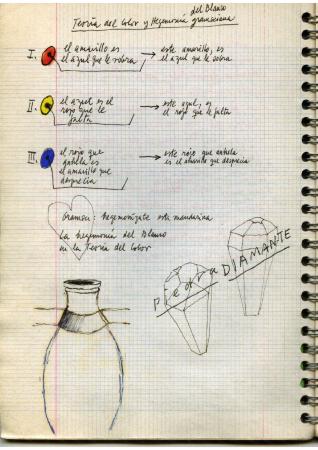 del Blanco
Teoría del Color y Hegemonía gramsciana
I. el amarillo es → este amarillo, es
el azul que le sobra el azul que le sobra
II. el azul es el → este azul, es
rojo que le el rojo que le falta
falta
III. el rojo que → este rojo que anhela
anhela es es el amarillo que desprecia
el amarillo que
desprecia
Gramsci: hegemonízate esta mandarina
La hegemonía del Blanco
en la Teoría del Color
piedra DIAMANTE